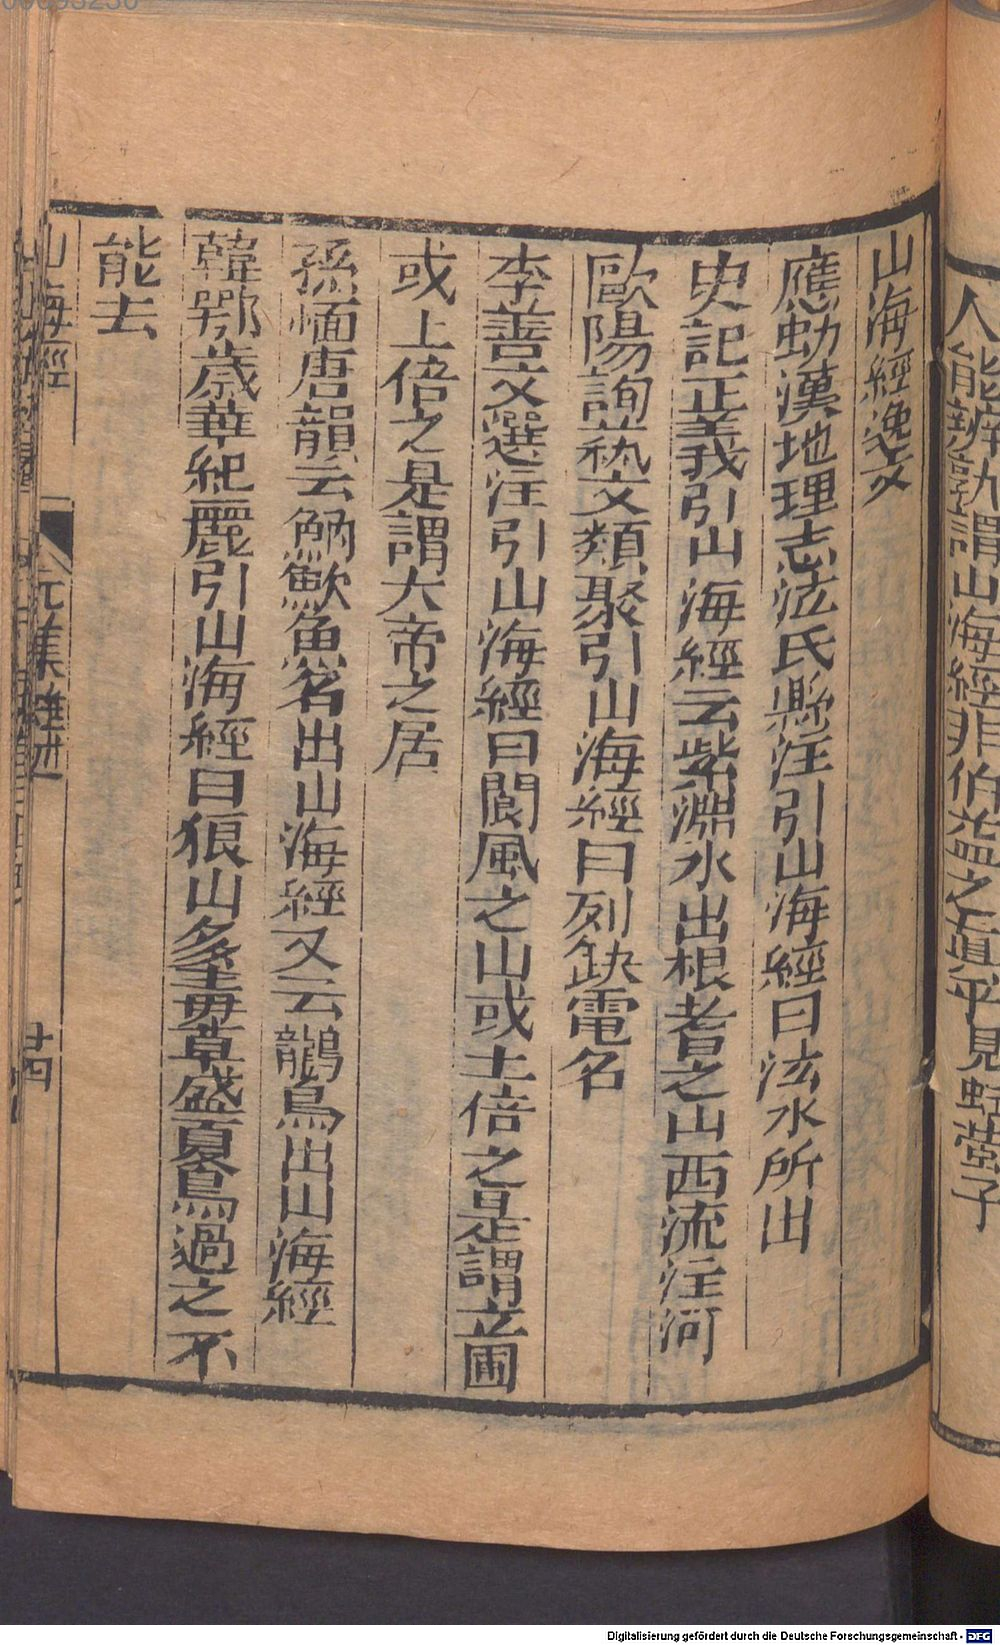 人能辨九謂山海經非伯益之直乎見蛣蜣子
山海經逸文
應劭漢地理志泫氏縣注引山海經曰泫水所出
史記正義引山海經云紫淵水出根耆之山西流注河
歐陽詢藝文類聚引山海經曰列缺電名
李善文選注引山海經曰閬風之山或上倍之是謂玄圃
或上倍之是謂大帝之居
孫愐唐韻云魶䱂魚名出山海經又云鸓鳥出山海經
韓鄂歲華紀麗引山海經曰狼山多毒草盛夏鳥過之不
能去
山海經
卄四
Digitalisierung gefördert durch die Deutsche Forschungsgemeinschaft - DFG